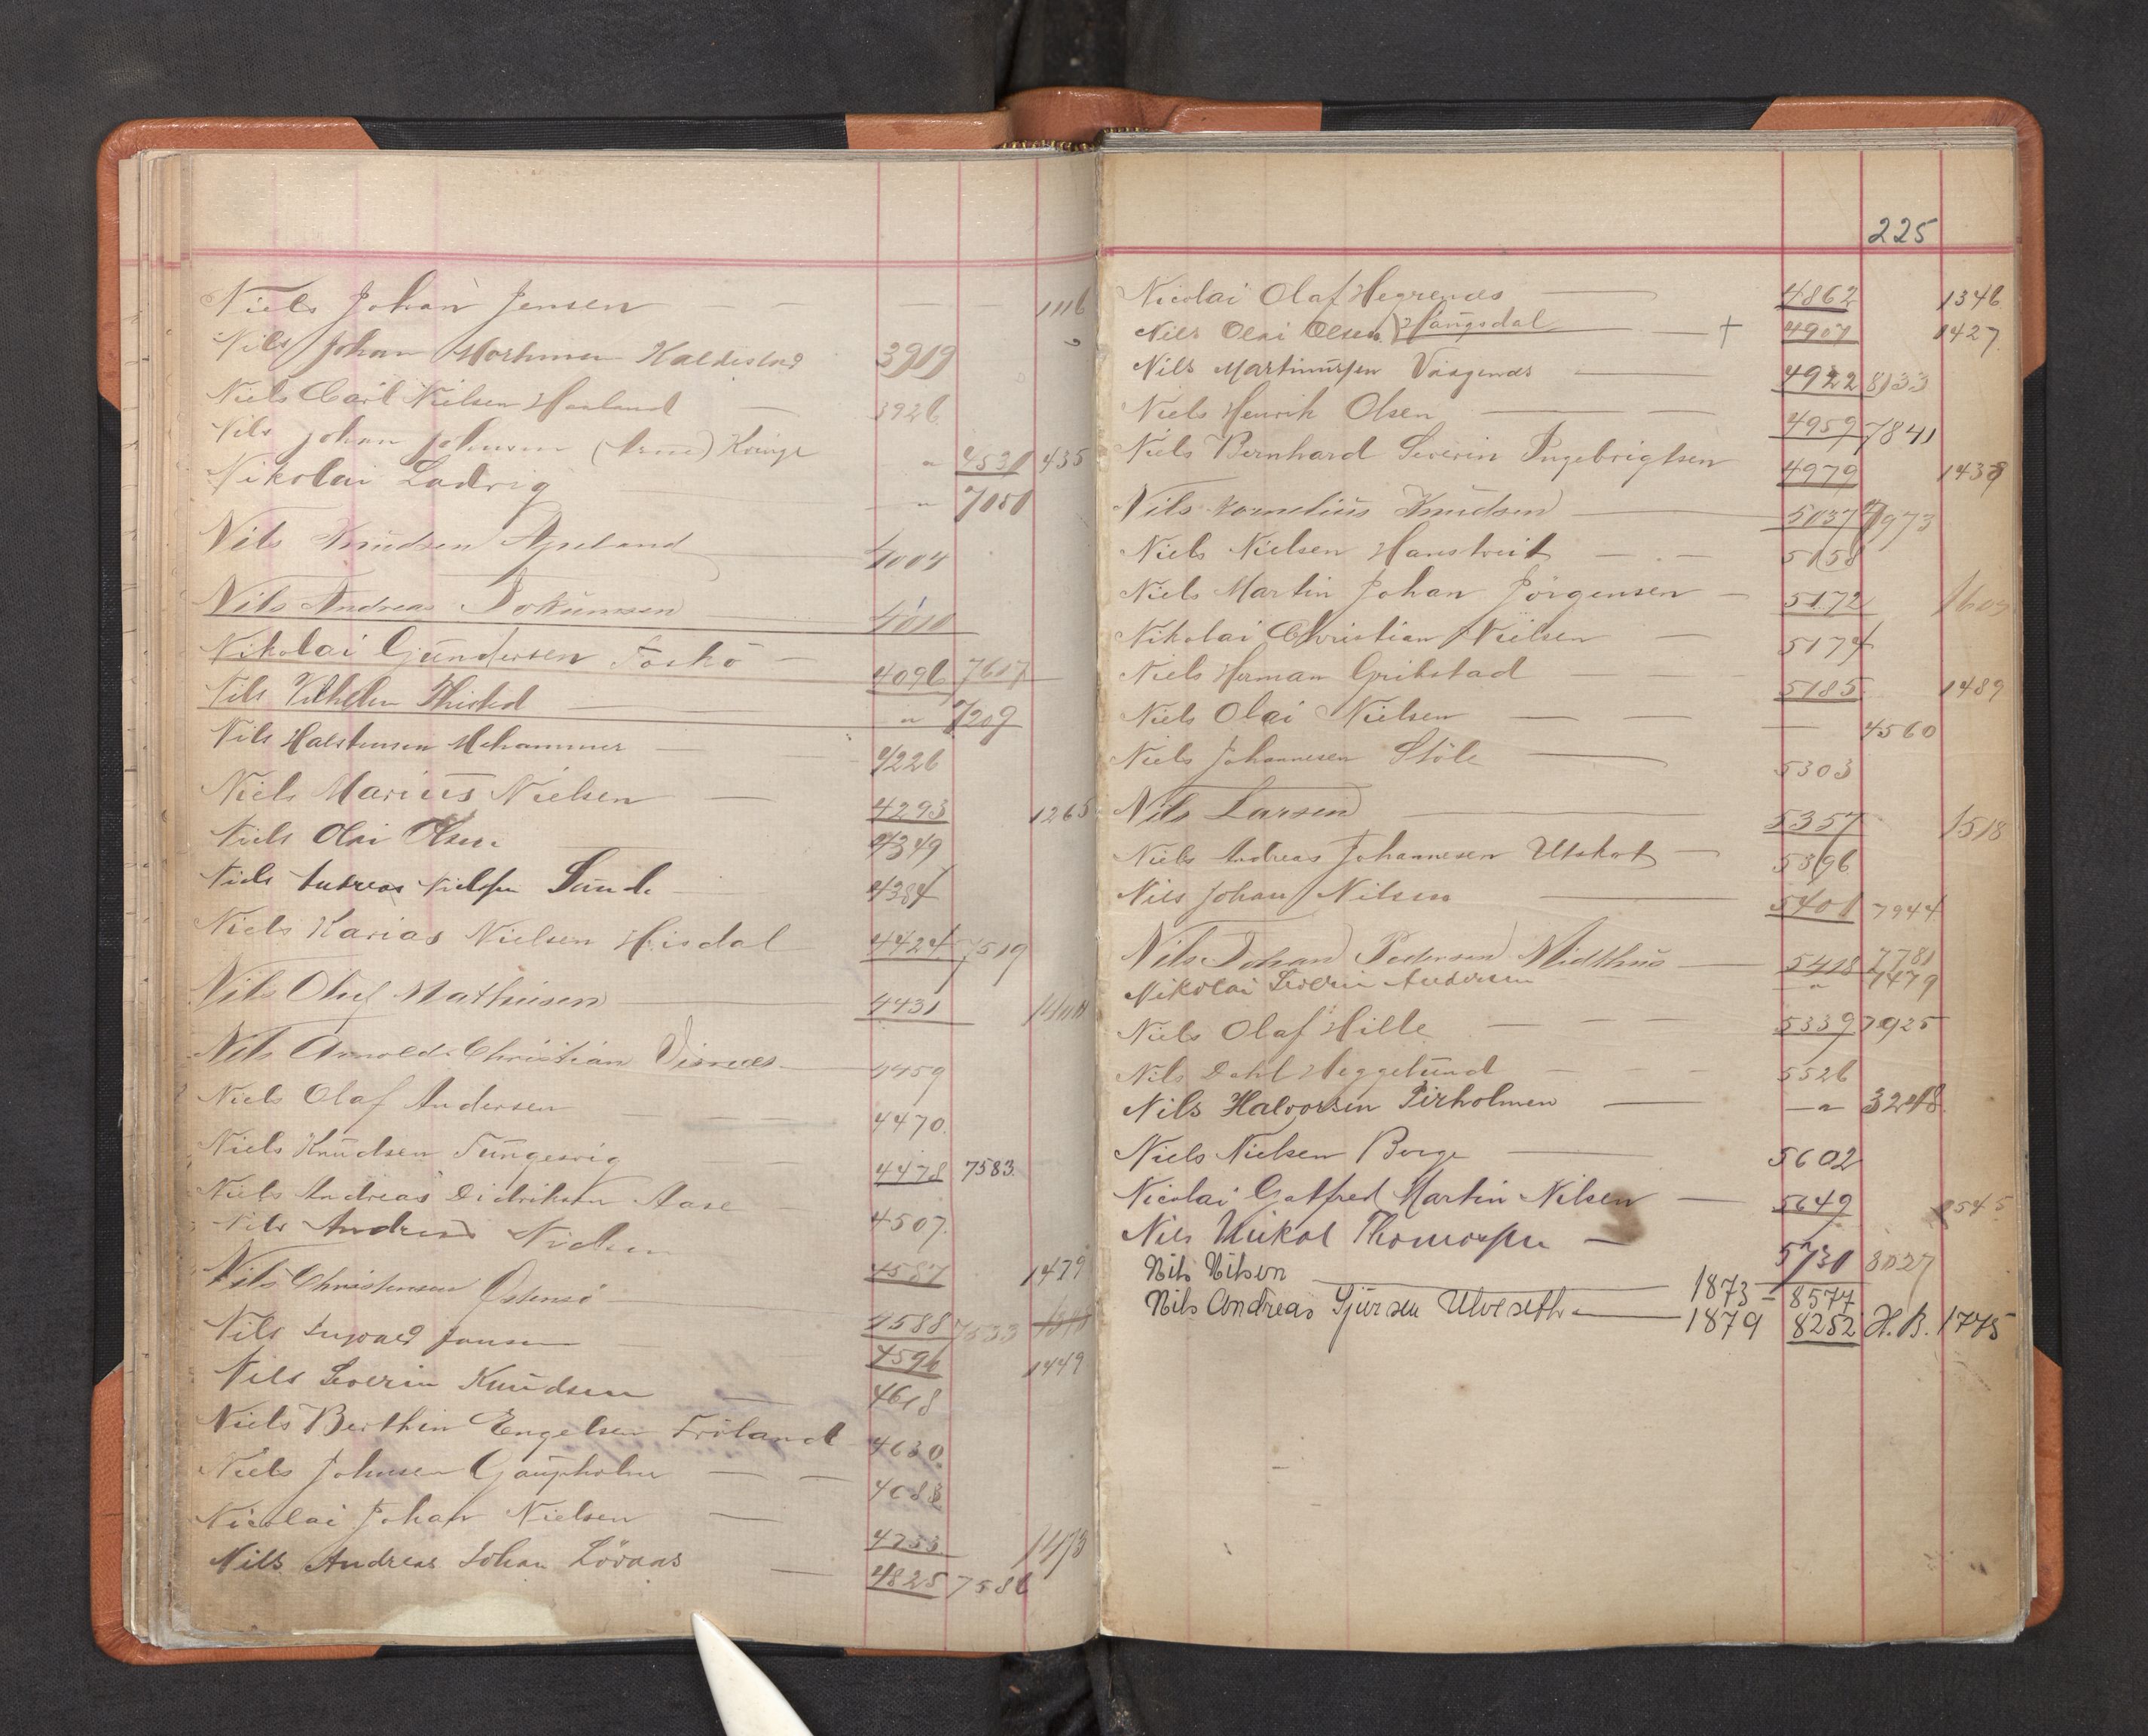 Niels Johan Jensen — — — 1116
Nils Johan Haldestad 3919
Niels Carl Nielsen Haaland — 3926
Nils Johan Johnsen (Arne) Kringe " 4531 435
Nikolai Ladvig — " 7051
Nils Knudsen Apeland 4004
Nils Andreas Tokumsen 4010
Nikolai Gundersen Foskö — 4096 7617
Nils Vilhelm Thisted — " 7209
Nils Halstensen Mehammer — 4226
Niels Marius Nielsen — 4293 1265
Niels Olai Olsen 4349
Niels Andreas Nielsen Sund 4384
Niels Karias Nielsen Hisdal 4424 7519
Nils Oluf Mathisen 4431
Nils Arnold Christian Visnees 4459
Niels Olaf Andersen 4470
Niels Knudsen Tungesvig — 4478 7583
Niels Andreas Didriksen Aase — 4507
Nils Andreas Nielsen 4587 1479
Nils Christensen Östensö 4588 7533
Nils Ingvald Jansen 4596 1449
Nils Severin Knudsen — 4618
Niels Berthin Engelsen Fröland 4630
Niels Johnsen Gaupholm — — 4683
Nicolai Johan Nielsen — 4753 1473
Nils Andreas Johan Lövaas — 4825 7586
225
Nicolai Olaf Hegrenes — 4862 1346
Nils Olai Olsen Haugsdal — † 4901 1427
Nils Martinussen Vaagenes — 4922 8133
Niels Henrik Olsen — — 4959 7841
Niels Bernhard Severin Ingebrigtsen 4979 1438
Nils Kornelius Knudsen — 5037 7973
Niels Nielsen Hanstveit — — 5158
Niels Martin Johan Jörgensen — 5172 1609
Nikolai Christian Nielsen — 5174
Niels Herman Grikstad — — 5185 1489
Niels Olai Nielsen — — — 4560
Niels Johannesen Stöle — 5303
Nils Larsen — 5357 1518
Niels Andreas Johannesen Utskot — 5396
Nils Johan Nilsen — 5401 7944
Nils Johan Pedersen Midthus — 5418 7781
Nikolai Severin Andersen " 7479
Niels Olaf Hille — — — 5339 7925
Nils Dahl Heggelund — — — 5526
Nils Halvorsen Pirholmen — — " 3248
Niels Nielsen Berge — 5602
Nicolai Gotfred Martin Nilsen — 5649 1545
Nils Mikal Thomassen — 5731 8027
Nils Nilsen — 1873 - 8577
Nils Andreas Sjursen Ulveseth — 1879 8252 H.B. 1775